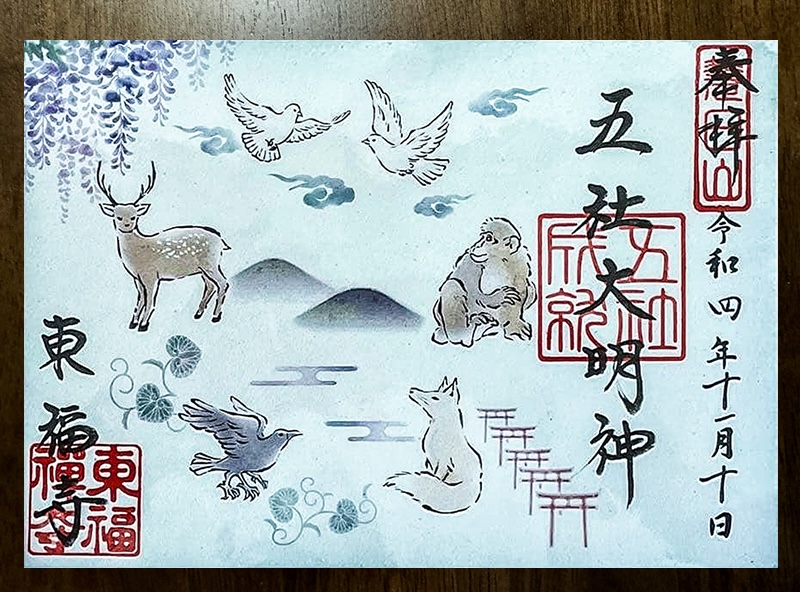 奉拝
令和四年十一月十日
五社大明神
五社
成就
東福寺
東福